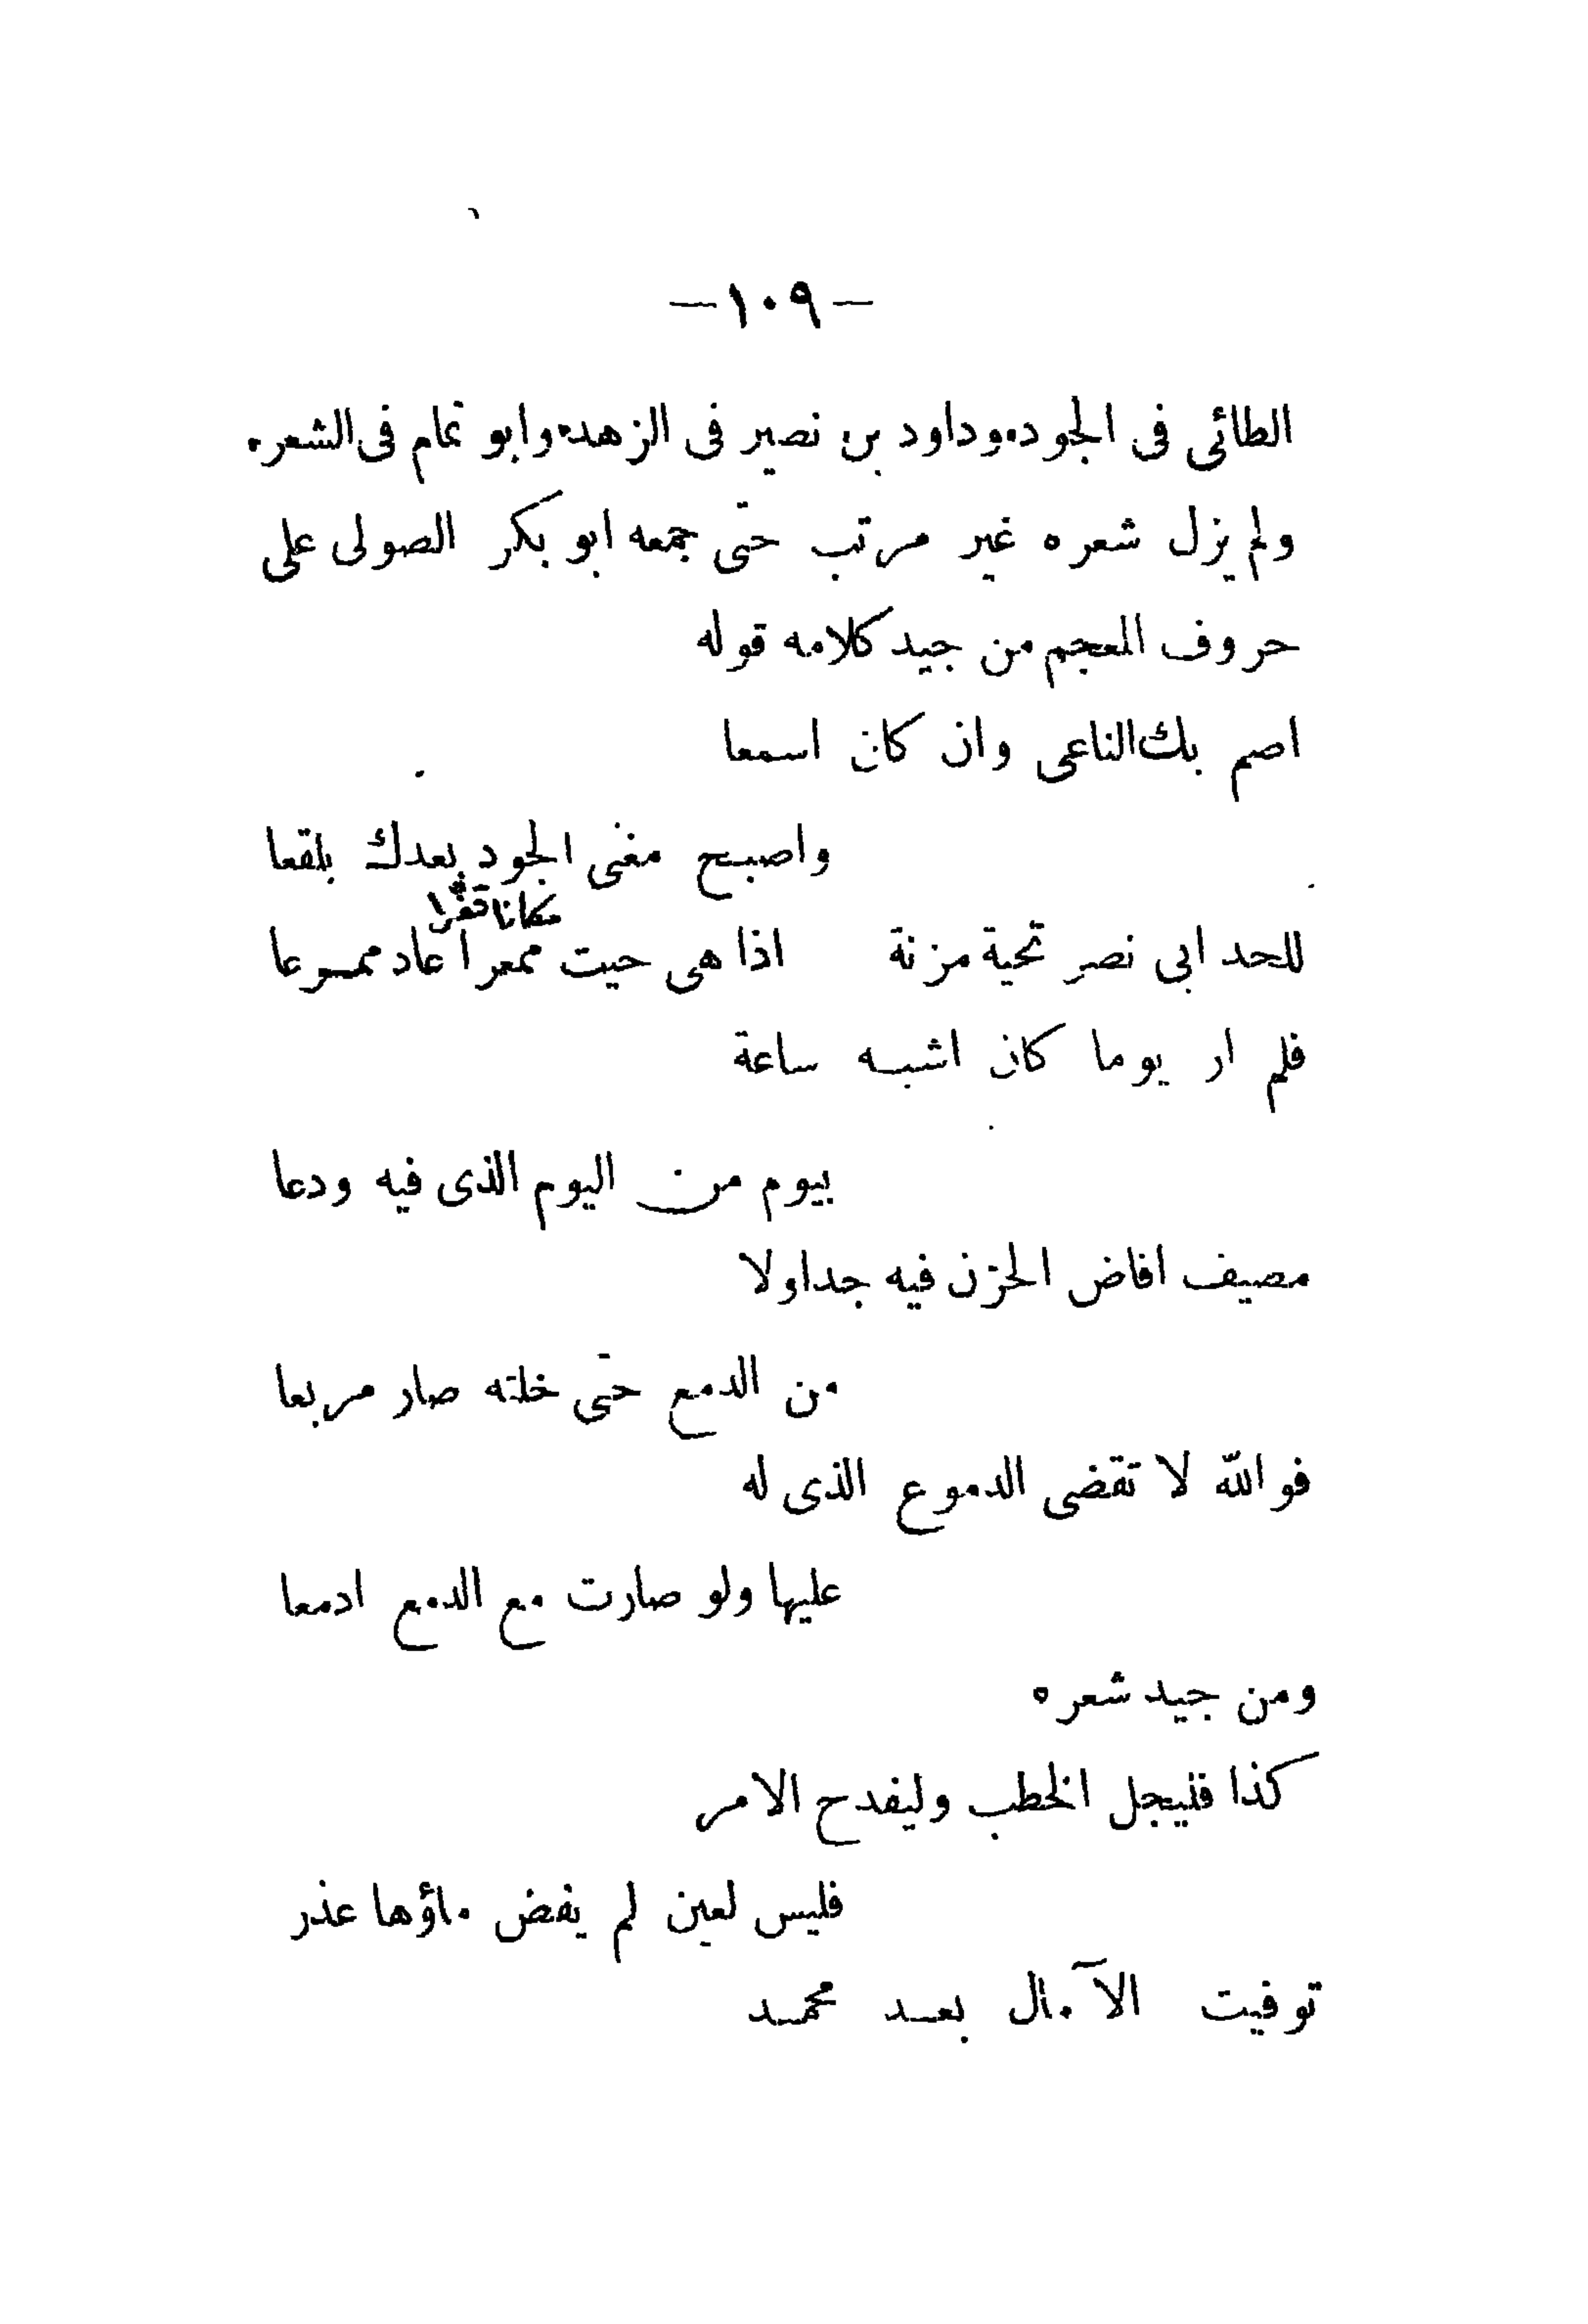 —١٠٩—
الطائى فى الجود٠وداود بن نصير فى الزهد٠وابو تمام فى الشعر٠
ولم يزل شعره غير مرتب حتى جمعه ابو بكر الصولى على
حروف المعجم من جيد كلامه قوله
اصم بك الناعى وان كان اسمعا
واصبح مغنى الجود بعدك بلقعا
مكانا قفرا
للحد ابى نصر تحية مزنة اذا هى حيت ممعرا عاد ممرعا
فلم ار يوما كان اشبه ساعة
بيوم من اليوم الذى فيه ودعا
مصيف افاض الحزن فيه جداولا
من الدمع حتى خلته صار مربعا
فوالله لا تقضى الدموع الذى له
عليها ولو صارت مع الدمع ادمعا
ومن جيد شعره
كذا فليجل الخطب وليفدح الامر
فليس لعين لم يفض ماؤها عذر
توفيت الآمال بعد محمد